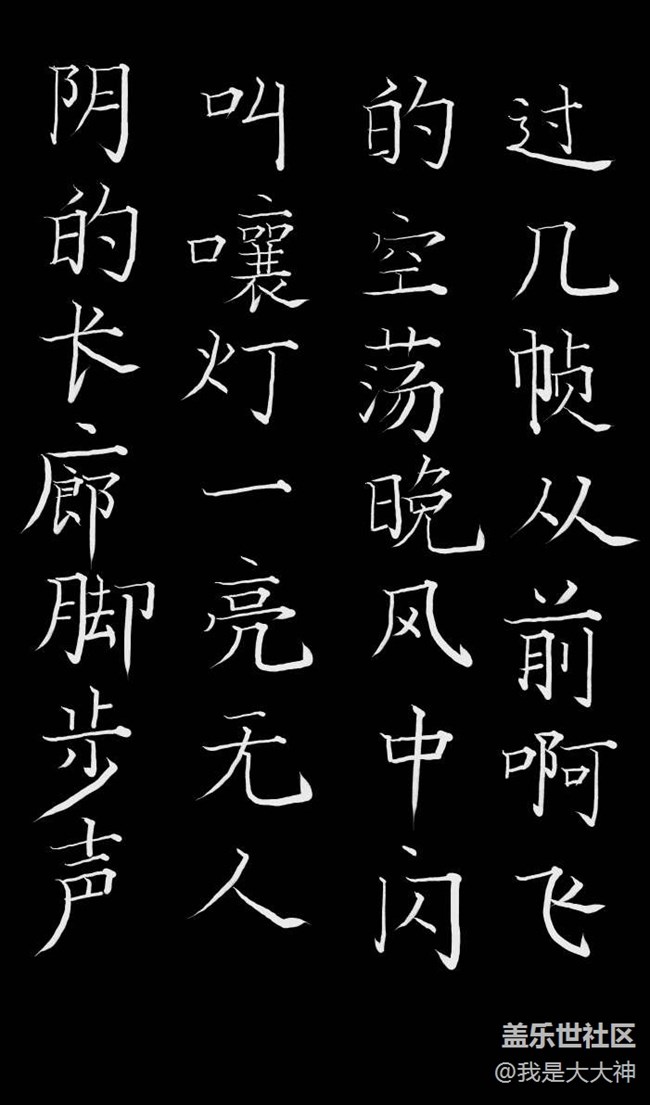 阴的长廊脚步声
叫嚷灯一亮无人
的空荡晚风中闪
过几帧从前啊飞
盖乐世社区
@我是大大神